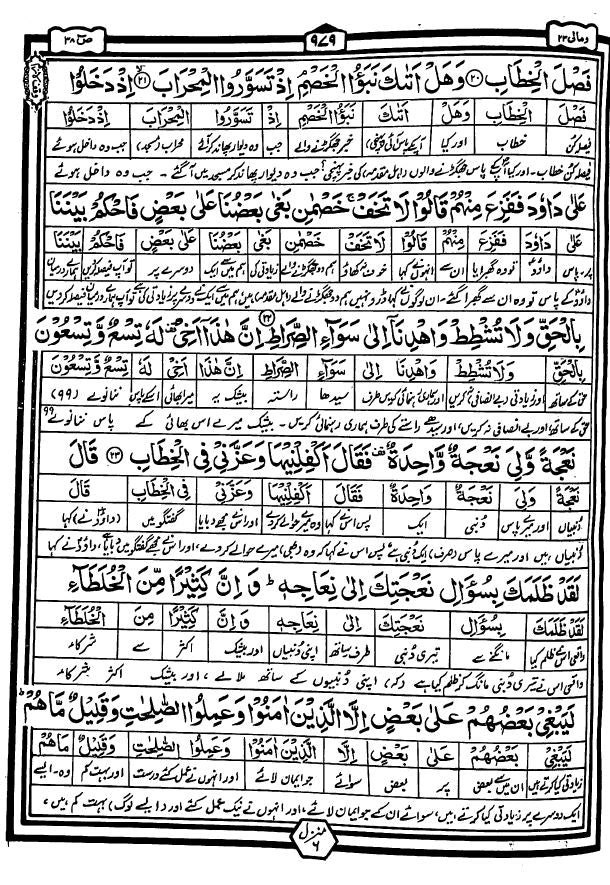 ومالی ۲۳
۹۷۹
صٓ ۳۸
فَصْلَ الْخِطَابِ ﴿۲۰﴾ وَهَلْ اَتٰىكَ نَبَؤُا الْخَصْمِ اِذْ تَسَوَّرُوا الْمِحْرَابَ ﴿۲۱﴾ اِذْ دَخَلُوْا
فَصْلَ الْخِطَابِ وَهَلْ اَتٰىكَ نَبَؤُا الْخَصْمِ اِذْ تَسَوَّرُوا الْمِحْرَابَ اِذْ دَخَلُوْا
فیصلہ کن خطاب اور کیا آپکے پاس آئی (پہنچی) خبر جھگڑنے والے جب وہ دیوار پھاند کر آئے محراب (مسجد) جب وہ داخل ہوئے
فیصلہ کن خطاب۔ اور کیا آپکے پاس جھگڑنے والوں (اہل مقدمہ) کی خبر پہنچی؟ جب وہ دیوار پھاند کر مسجد میں آ گئے۔ جب وہ داخل ہوئے
عَلٰى دَاوٗدَ فَفَزِعَ مِنْهُمْ قَالُوْا لَا تَخَفْ ۚ خَصْمٰنِ بَغٰى بَعْضُنَا عَلٰى بَعْضٍ فَاحْكُمْ بَيْنَنَا
عَلٰى دَاوٗدَ فَفَزِعَ مِنْهُمْ قَالُوْا لَا تَخَفْ خَصْمٰنِ بَغٰى بَعْضُنَا عَلٰى بَعْضٍ فَاحْكُمْ بَيْنَنَا
پر۔ پاس داؤدؑ تو وہ گھبرایا ان سے انہوں نے کہا خوف نہ کھاؤ ہم دو جھگڑنے والے زیادتی کی ہم میں سے ایک دوسرے پر تو آپ فیصلہ کریں ہمارے درمیان
داؤدؑ کے پاس تو وہ ان سے گھبرا گئے۔ ان لوگوں نے کہا ڈرو نہیں ہم دو جھگڑنے والے (اہل مقدمہ) ہیں ہم میں سے ایک نے دوسرے پر زیادتی کی ہے تو آپ ہمارے درمیان فیصلہ کر دیں
بِالْحَقِّ وَلَا تُشْطِطْ وَاهْدِنَآ اِلٰى سَوَآءِ الصِّرَاطِ ﴿۲۲﴾ اِنَّ هٰذَآ اَخِيْ ۫ لَهٗ تِسْعٌ وَّتِسْعُوْنَ
بِالْحَقِّ وَلَا تُشْطِطْ وَاهْدِنَا اِلٰى سَوَآءِ الصِّرَاطِ اِنَّ هٰذَا اَخِيْ لَهٗ تِسْعٌ وَّتِسْعُوْنَ
حق کے ساتھ اور زیادتی (بے انصافی) نہ کریں اور ہماری رہنمائی کریں طرف سیدھا راستہ بیشک یہ میرا بھائی اسکے پاس ننانوے (۹۹)
حق کے ساتھ، اور بے انصافی نہ کریں، اور سیدھے راستے کی طرف ہماری رہنمائی کریں۔ بیشک میرے اس بھائی کے پاس ننانوے ۹۹
نَعْجَةً وَّلِيَ نَعْجَةٌ وَّاحِدَةٌ ۫ فَقَالَ اَكْفِلْنِيْهَا وَعَزَّنِيْ فِي الْخِطَابِ ﴿۲۳﴾ قَالَ
نَعْجَةً وَّلِيَ نَعْجَةٌ وَّاحِدَةٌ فَقَالَ اَكْفِلْنِيْهَا وَعَزَّنِيْ فِي الْخِطَابِ قَالَ
دُنبیاں اور میرے پاس دُنبی ایک پس اس نے کہا وہ میرے حوالے کر دے اور اس نے مجھے دبایا گفتگو میں (داؤدؑ نے) کہا
دُنبیاں ہیں اور میرے پاس (صرف) ایک دُنبی ہے پس اس نے کہا کہ وہ (بھی) میرے حوالے کر دے، اور اس نے مجھے گفتگو میں دبایا ہے، داؤدؑ نے کہا
لَقَدْ ظَلَمَكَ بِسُؤَالِ نَعْجَتِكَ اِلٰى نِعَاجِهٖ ؕ وَاِنَّ كَثِيْرًا مِّنَ الْخُلَطَآءِ
لَقَدْ ظَلَمَكَ بِسُؤَالِ نَعْجَتِكَ اِلٰى نِعَاجِهٖ وَاِنَّ كَثِيْرًا مِنَ الْخُلَطَآءِ
واقعی اس نے ظلم کیا مانگنے سے تیری دُنبی طرف۔ ساتھ اپنی دُنبیاں اور بیشک اکثر سے شرکاء
واقعی اس نے تیری دُنبی مانگ کر ظلم کیا ہے (کہ) اپنی دُنبیوں کے ساتھ ملا لے، اور بیشک اکثر شرکاء
لَيَبْغِيْ بَعْضُهُمْ عَلٰى بَعْضٍ اِلَّا الَّذِيْنَ اٰمَنُوْا وَعَمِلُوا الصّٰلِحٰتِ وَقَلِيْلٌ مَّا هُمْ ؕ
لَيَبْغِيْ بَعْضُهُمْ عَلٰى بَعْضٍ اِلَّا الَّذِيْنَ اٰمَنُوْا وَعَمِلُوا الصّٰلِحٰتِ وَقَلِيْلٌ مَّا هُمْ
زیادتی کیا کرتے ہیں ان میں سے بعض پر بعض سوائے جو ایمان لائے اور انہوں نے عمل کئے درست اور بہت کم وہ۔ ایسے
ایک دوسرے پر زیادتی کیا کرتے ہیں، سوائے ان کے جو ایمان لائے، اور انہوں نے نیک عمل کئے اور (ایسے لوگ) بہت کم ہیں،
منزل ۶